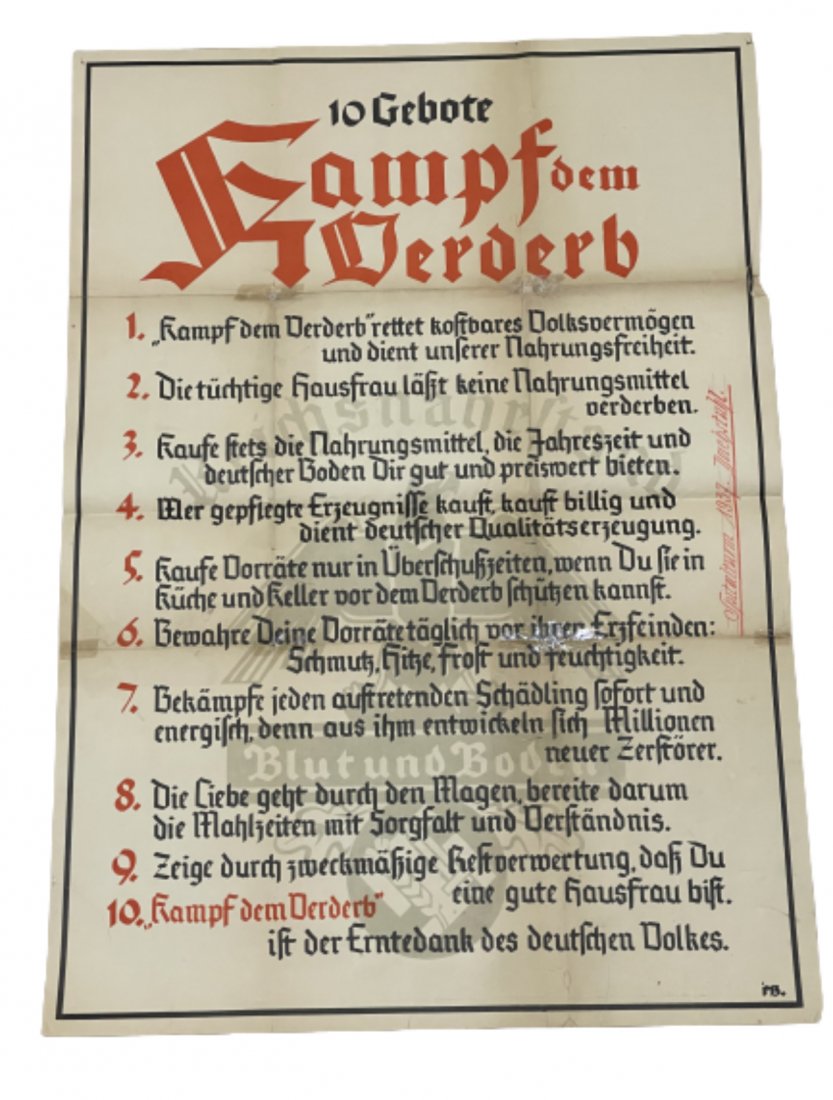 10 Gebote
Kampf dem
Verderb
1. „Kampf dem Verderb" rettet kostbares Volksvermögen
und dient unserer Nahrungsfreiheit.
2. Die tüchtige Hausfrau läßt keine Nahrungsmittel
verderben.
3. Kaufe stets die Nahrungsmittel, die Jahreszeit und
deutscher Boden Dir gut und preiswert bieten.
4. Wer gepflegte Erzeugnisse kauft, kauft billig und
dient deutscher Qualitätserzeugung.
5. Kaufe Vorräte nur in Überschußzeiten, wenn Du sie in
Küche und Keller vor dem Verderb schützen kannst.
6. Bewahre Deine Vorräte täglich vor ihren Erzfeinden:
Schmutz, Hitze, Frost und Feuchtigkeit.
7. Bekämpfe jeden auftretenden Schädling sofort und
energisch, denn aus ihm entwickeln sich Millionen
neuer Zerstörer.
8. Die Liebe geht durch den Magen, bereite darum
die Mahlzeiten mit Sorgfalt und Verständnis.
9. Zeige durch zweckmäßige Restverwertung, daß Du
eine gute Hausfrau bist.
10. „Kampf dem Verderb"
ist der Erntedank des deutschen Volkes.
Reichsnährstand
Blut und Boden
1937